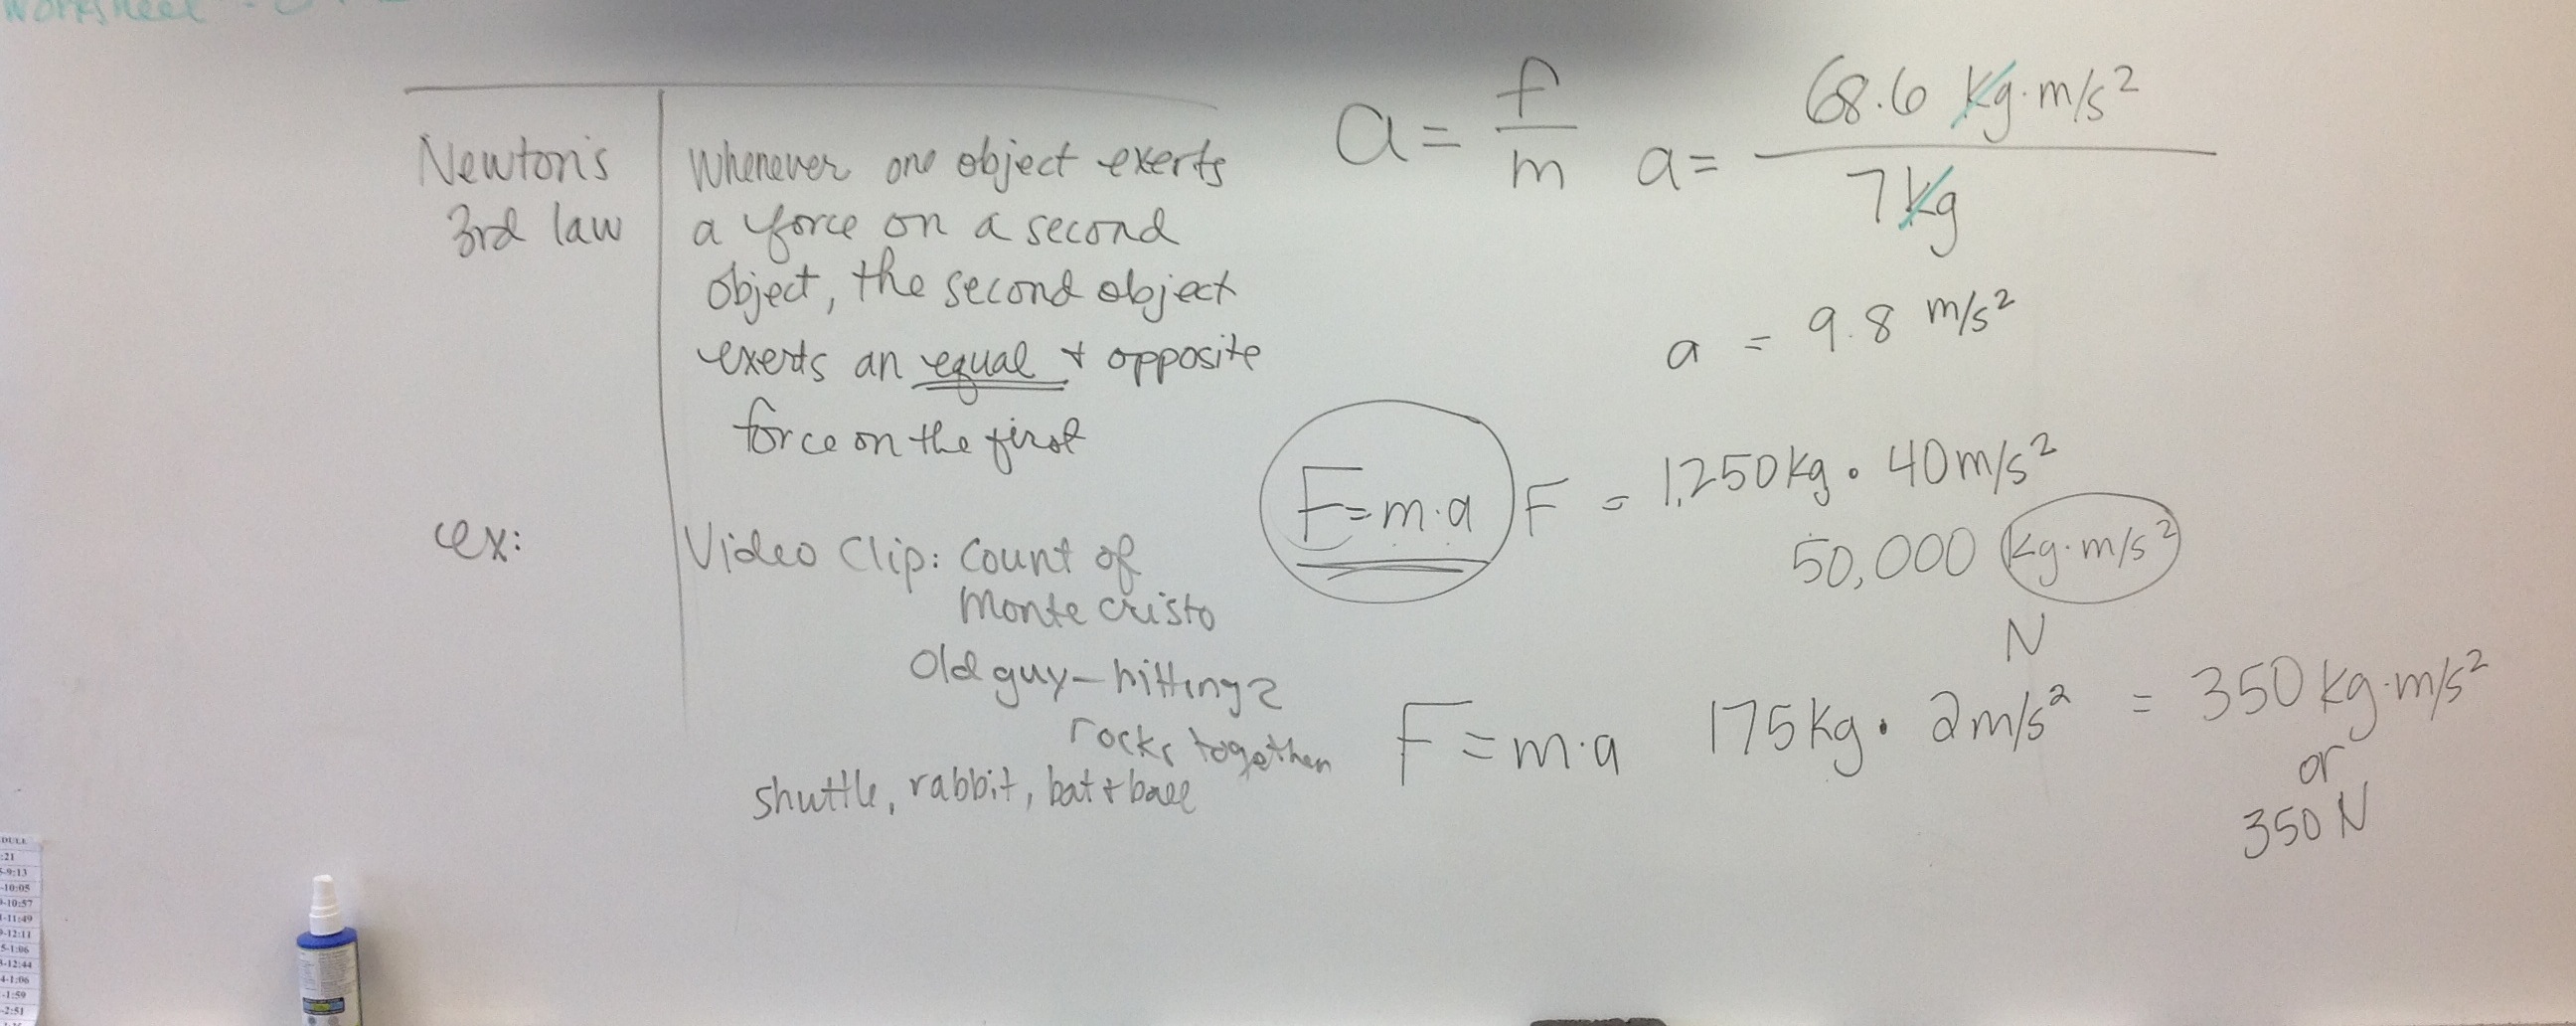 Worksheet
Newton's
3rd law
Whenever one object exerts
a force on a second
object, the second object
exerts an equal + opposite
force on the first
ex:
Video Clip: Count of
Monte Cristo
Old guy - hitting 2
rocks together
shuttle, rabbit, bat + ball
a = f/m
a = 68.6 kg·m/s² / 7 kg
a = 9.8 m/s²
F=m·a F = 1,250 kg · 40 m/s²
50,000 kg·m/s²
N
F=m·a 175 kg · 2 m/s² = 350 kg·m/s²
or
350 N
DULE
:21
-9:13
-10:05
-10:57
-11:49
-12:11
5-1:06
-12:44
4-1:06
-1:59
-2:51